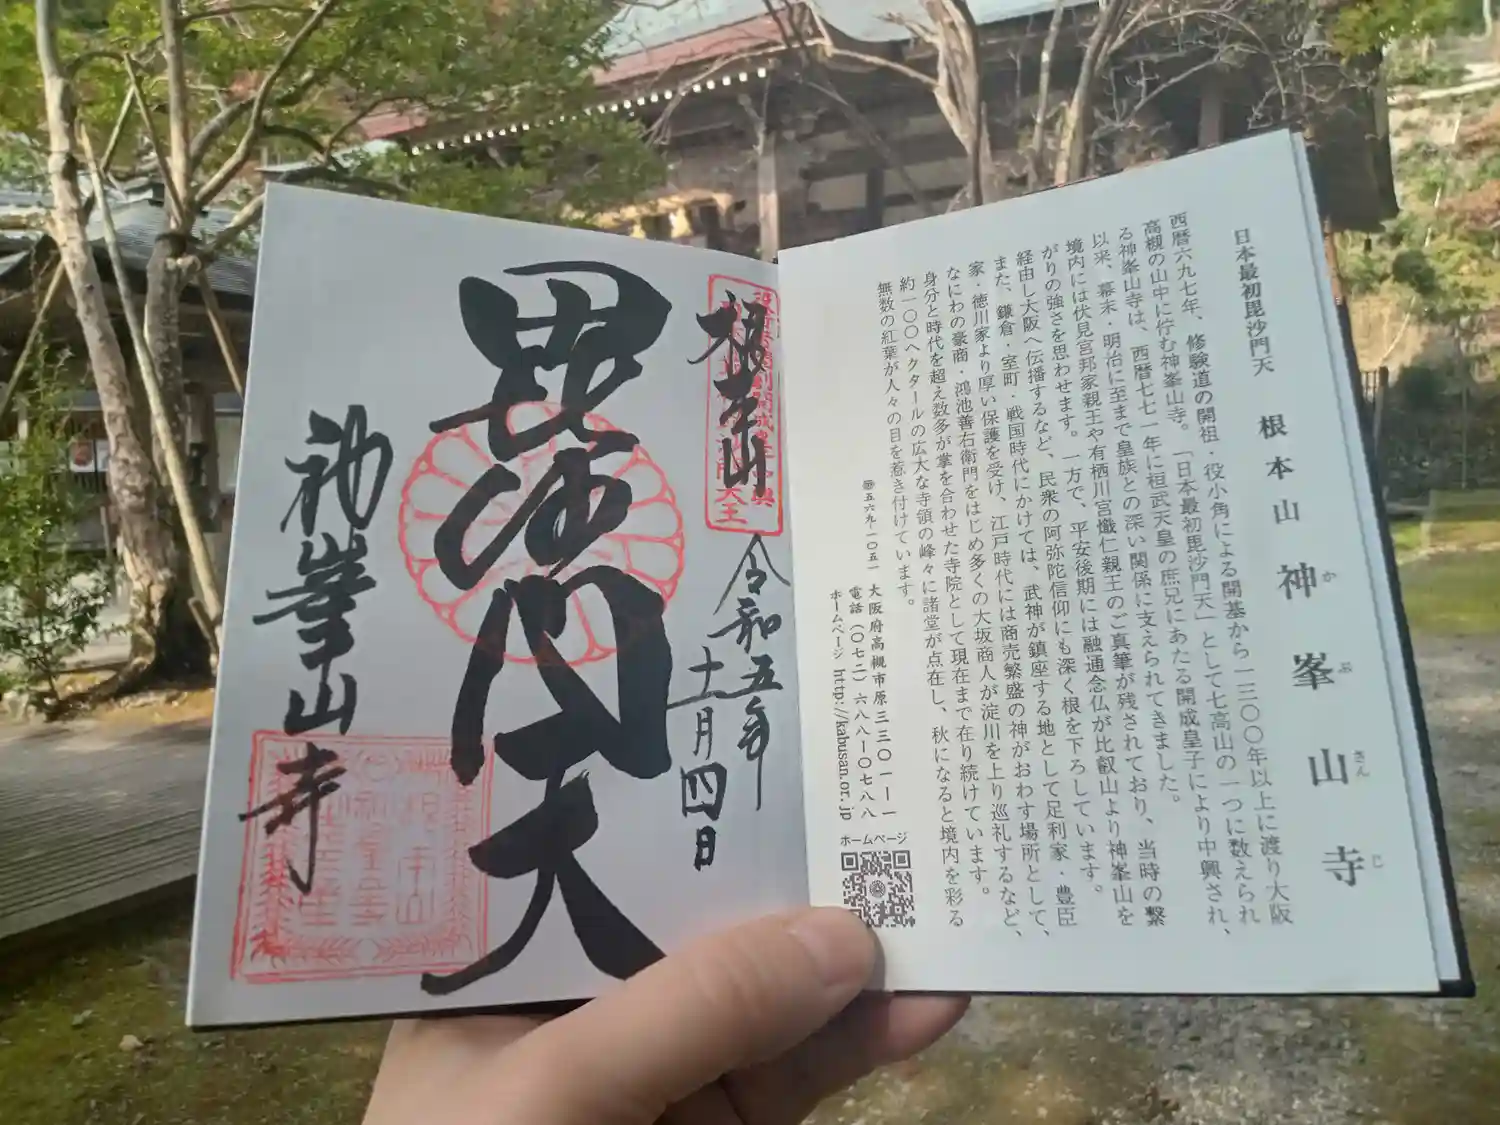 日本最初毘沙門天 根本山 神峯山寺
か
ぶ
さん
じ
西暦六九七年、修験道の開祖・役小角による開基から一三〇〇年以上に渡り大阪
高槻の山中に佇む神峯山寺。「日本最初毘沙門天」として七高山の一つに数えられ
る神峯山寺は、西暦七七一年に桓武天皇の庶兄にあたる開成皇子により中興され、
以来、幕末・明治に至まで皇族との深い関係に支えられてきました。
境内には伏見宮邦家親王や有栖川宮熾仁親王のご真筆が残されており、当時の繋
がりの強さを思わせます。一方で、平安後期には融通念仏が比叡山より神峯山を
経由し大阪へ伝播するなど、民衆の阿弥陀信仰にも深く根を下ろしています。
また、鎌倉・室町・戦国時代にかけては、武神が鎮座する地として足利家・豊臣
家・徳川家より厚い保護を受け、江戸時代には商売繁盛の神がおわす場所として、
なにわの豪商・鴻池善右衛門をはじめ多くの大坂商人が淀川を上り巡礼するなど、
身分と時代を超え数多が掌を合わせた寺院として現在まで在り続けています。
約一〇〇ヘクタールの広大な寺領の峰々に諸堂が点在し、秋になると境内を彩る
無数の紅葉が人々の目を惹き付けています。
〒五六九-一〇五一 大阪府高槻市原三三〇一-一
電話(〇七二)六八八-〇七八八
ホームページ http://kabusan.or.jp
ホームページ
根本山
令和五年
十一月四日
毘沙門天
神峯山寺